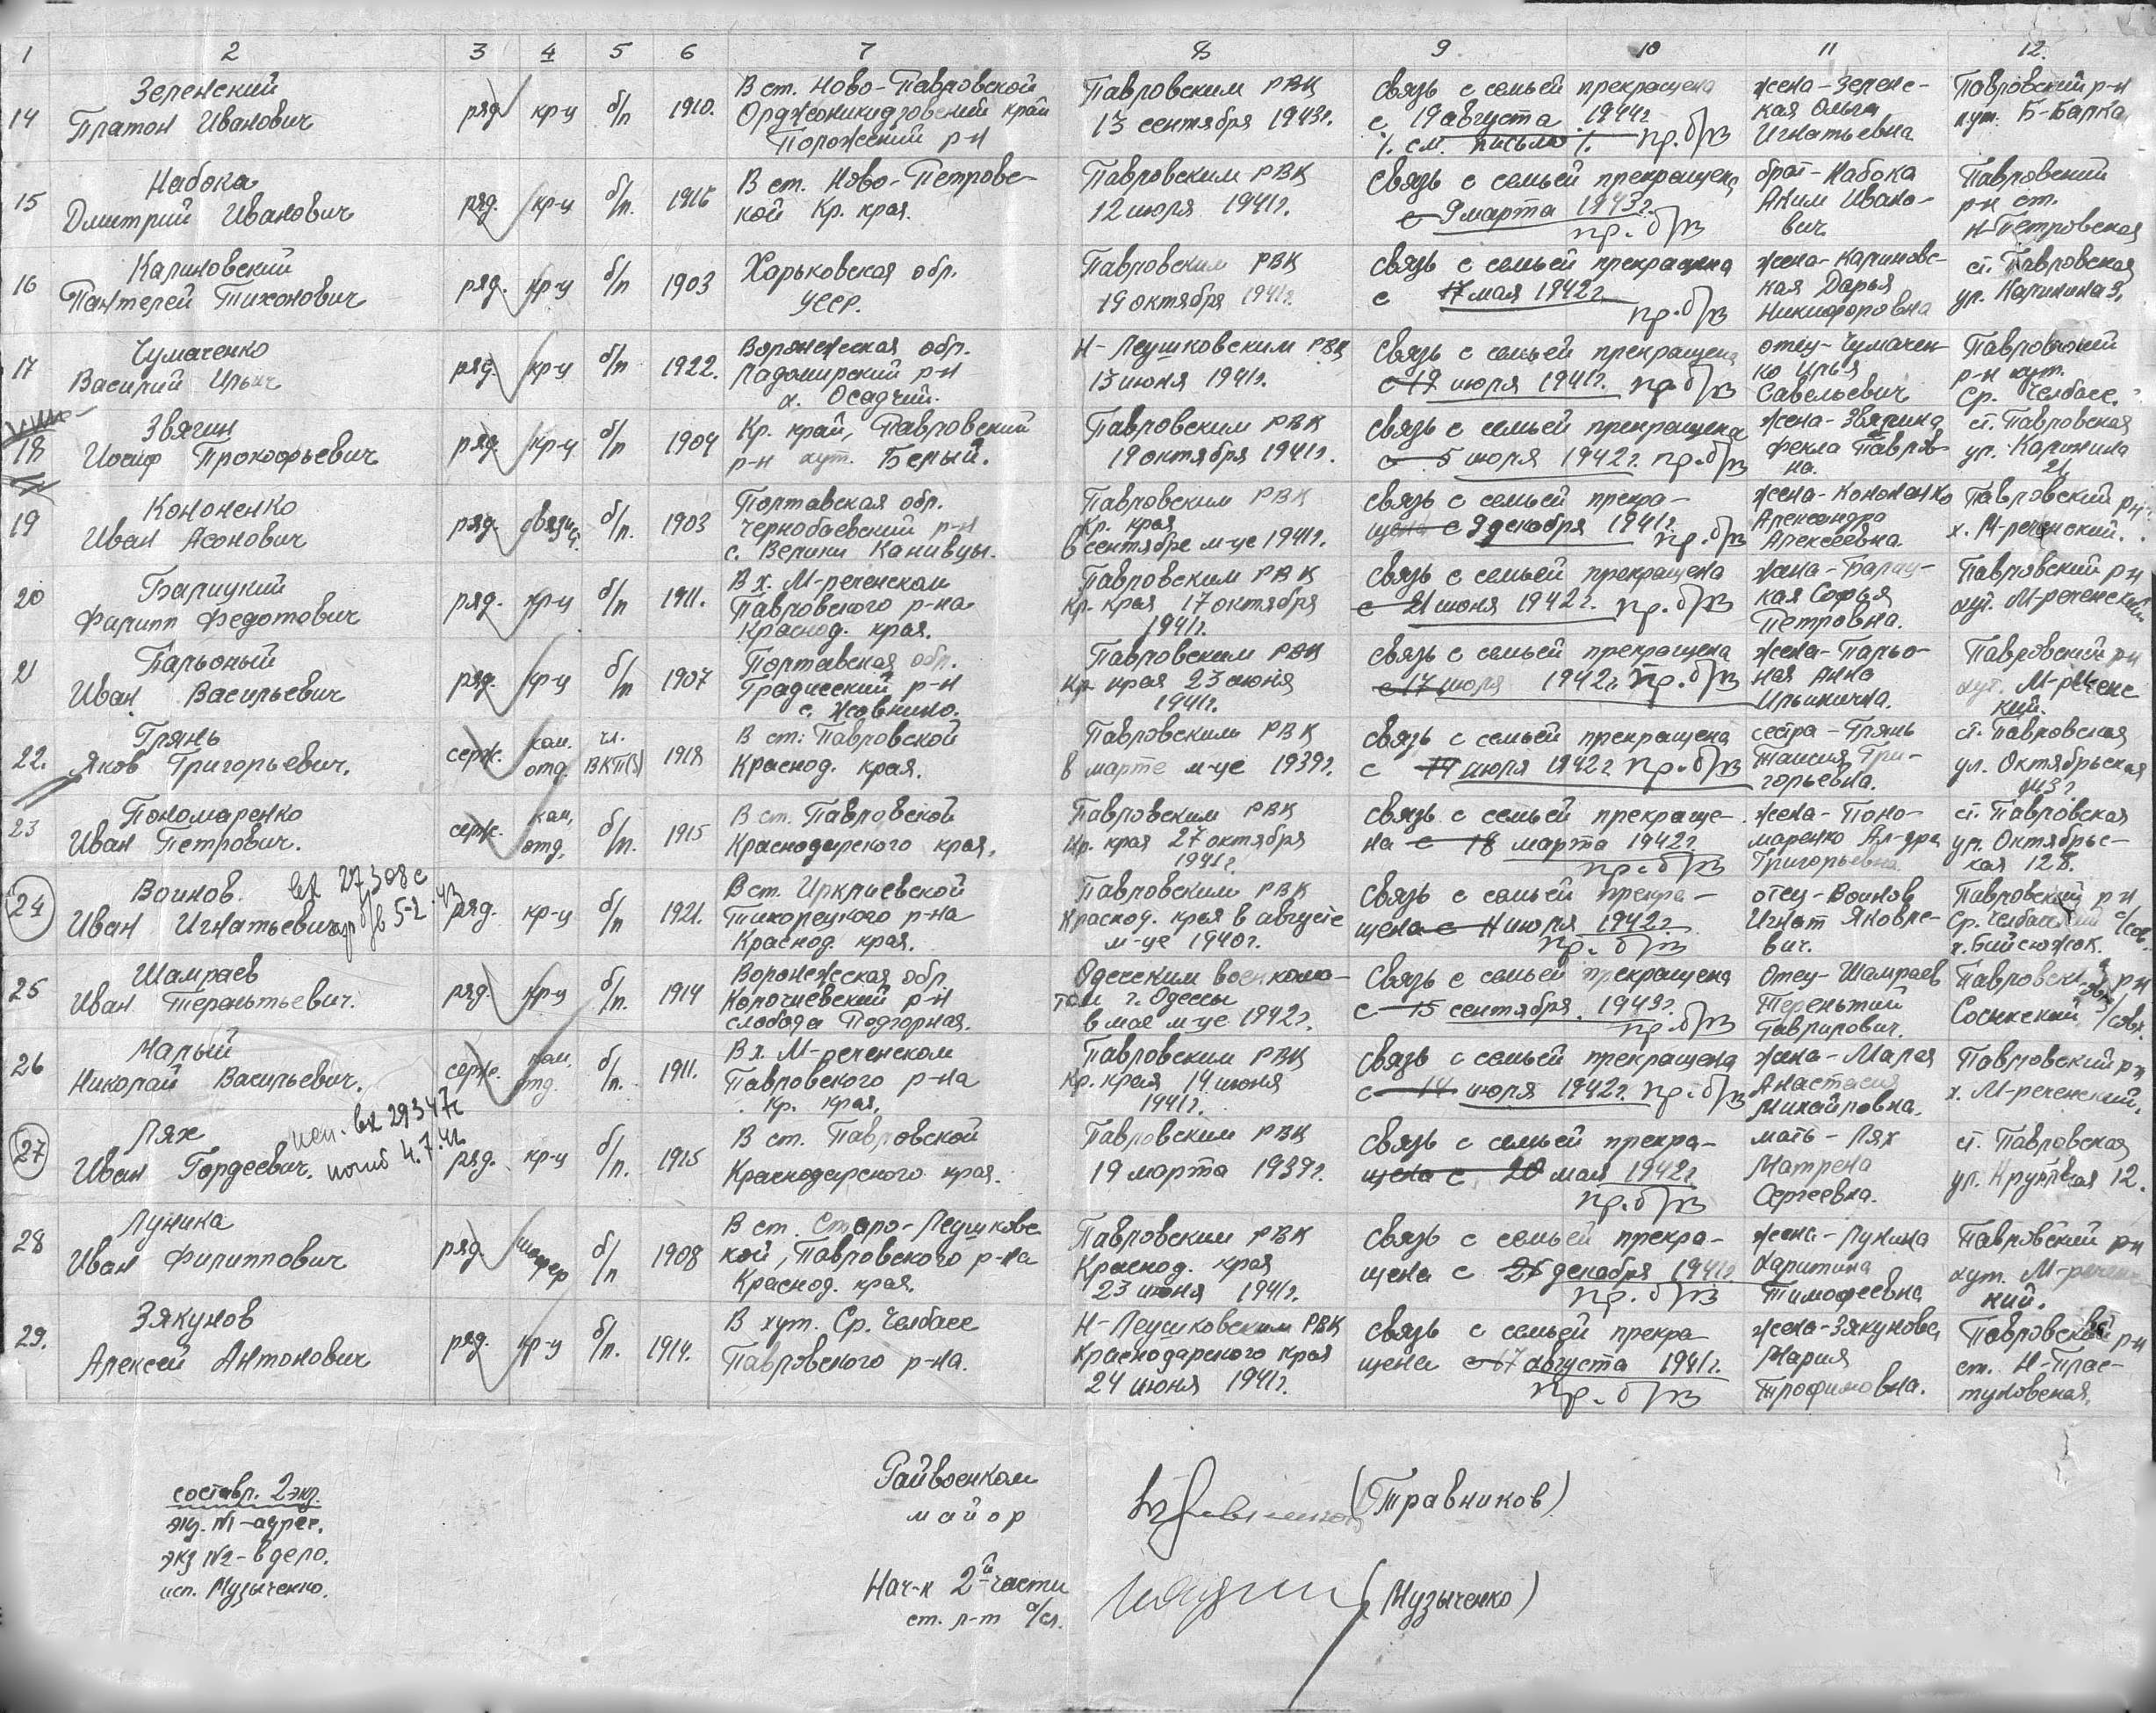 1 2 3 4 5 6 7 8 9 10 11 12.
14 Зеленский Платон Иванович ряд кр-ц б/п 1910. В ст. Ново-Павловской Орджоникидзовский край Павловским РВК 13 сентября 1943г. Связь с семьей прекращена с 19 августа 1944г. /. см. письмо /. пр. б/в жена-Зеленс-кая Ольга Игнатьевна Павловский р-н хут. Б-Балка
15 Набока Дмитрий Иванович ряд. кр-ц б/п. 1916 В ст. Ново-Петровс-кой Кр. края. Павловским РВК 12 июля 1941г. Связь с семьей прекращена с 9 марта 1943г. пр. б/в брат-Набока Аким Ивано-вич Павловский р-н ст. Н-Петровская
16 Калиновский Пантелей Тихонович ряд. кр-ц б/п 1903 Харьковская обл. УССР. Павловским РВК 19 октября 1941г. Связь с семьей прекращена с 17 мая 1942г. пр. б/в жена-Калиновс-кая Дарья Никифоровна ст. Павловская ул. Калинина 3,
17 Чумаченко Василий Ильич ряд. кр-ц б/п 1922. Воронежская обл. Ладомирский р-н х. Осадчий. Н-Леушковским РВК 13 июня 1941г. Связь с семьей прекращена с 19 июля 1941г. пр б/в отец-Чумачен-ко Илья Савельевич Павловский р-н хут. Ср. Челбасс.
18 Звягин Иосиф Прокофьевич ряд. кр-ц б/п 1904 Кр. край, Павловский р-н хут. Белый. Павловским РВК 19 октября 1941г. Связь с семьей прекращена с 5 июля 1942г. пр. б/в жена-Звягина Фекла Павлов-на. ст. Павловская ул. Калинина 21
19 Кононенко Иван Асонович ряд. связист. б/п. 1903 Полтавская обл. Чернобаевский р-н с. Велики Канивцы. Павловским РВК Кр. края в сентябре м-це 1941г. Связь с семьей прекра-щена с 9 декабря 1941г. пр. б/в жена-Кононенко Александра Алексеевна. Павловский р-н х. М-реченский.
20 Балицкий Филипп Федотович ряд. кр-ц б/п 1911. В х. М-реченском Павловского р-на Краснод. края. Павловским РВК Кр. края 17 октября 1941г. Связь с семьей прекращена с 21 июня 1942г. пр. б/в жена-Балиц-кая Софья Петровна. Павловский р-н хут. М-реченский
21 Пальоный Иван Васильевич ряд. кр-ц б/п 1907 Полтавская обл. Градисский р-н с. Жовнино. Павловским РВК Кр. края 23 июня 1941г. Связь с семьей прекращена с 17 июля 1942г. пр. б/в жена-Пальо-ная Анна Ильинична. Павловский р-н хут. М-речене кий.
22. Грянь Яков Григорьевич. серж. ком. отд. чл. ВКП(б) 1918 В ст. Павловской Краснод. края. Павловским РВК в марте м-це 1939г. Связь с семьей прекращена с 14 июля 1942г пр. б/в сестра-Грянь Таисия Гри-горьевна. ст. Павловская ул. Октябрьская
23 Пономаренко Иван Петрович. серж. ком, отд. б/п. 1915 В ст. Павловской Краснодарского края. Павловским РВК Кр. края 27 октября 1941г. Связь с семьей прекраще-на с 18 марта 1942г. пр. б/в жена-Поно-маренко Ал-дра Григорьевна ст. Павловская ул. Октябрьс-кая 128.
24 Воинов. Иван Игнатьевич вх 27308с ряд. кр-ц б/п 1921. В ст. Ирклиевской Тихорецкого р-на Краснод. края. Павловским РВК Краснод. края в августе м-це 1940г. Связь с семьей прекра-щена с 11 июля 1942г. пр. б/в отец-Воинов Игнат Яковле-вич. Павловский р-н Ср. Челбасский с/сов. х. Бийсюжок.
25 Шамраев Иван Терентьевич. ряд. кр-ц б/п. 1914 Воронежская обл. Корочиевский р-н слобода Подгорная. Одесским военкома-том г. Одессы в мае м-це 1942г. Связь с семьей прекращена с 15 сентября 1943г. пр. б/в Отец-Шамраев Терентий Гаврилович. Павловский р-н Сосыкский с/сов.
26 Малый Николай Васильевич. серж. ком. отд. б/п. 1911. В х. М-реченском Павловского р-на Кр. края. Павловским РВК Кр. края 14 июня 1941г. Связь с семьей прекращена с 14 июля 1942г. пр. б/в жена-Малая Анастасия Михайловна. Павловский р-н х. М-реченский.
27 Лях Иван Гордеевич. исп. вх 29347с погиб 4.7.42. ряд. кр-ц б/п. 1915 В ст. Павловской Краснодарского края. Павловским РВК 19 марта 1939г. Связь с семьей прекра-щена с 20 мая 1942г. пр. б/в мать-Лях Матрена Сергеевна. ст. Павловская ул. Круповая 12.
28 Лунина Иван Филиппович ряд. шофер б/п 1908 В ст. Старо-Леушковс кой, Павловского р-на Краснод. края. Павловским РВК Краснод. края 23 июня 1941г. Связь с семьей прекра-щена с 25 декабря 1941г. пр. б/в жена-Лунина Харитина Тимофеевна Павловский р-н хут. М-речене кий.
29. Зякунов Алексей Антонович ряд. кр-ц б/п. 1914. В хут. Ср. Челбасс Павловского р-на. Н-Леушковским РВК Краснодарского края 24 июня 1941г. Связь с семьей прекра щена с 17 августа 1941г. пр. б/в жена-Зякунова Мария Трофимовна. Павловский р-н ст. Н-Плас-туновская.
составл. 2 экз.
экз. №1-адрес.
экз №2-в дело.
исп. Музыченко.
Райвоенком
майор (Травников)
Нач-к 2й части
ст. л-т а/сл. (Музыченко)